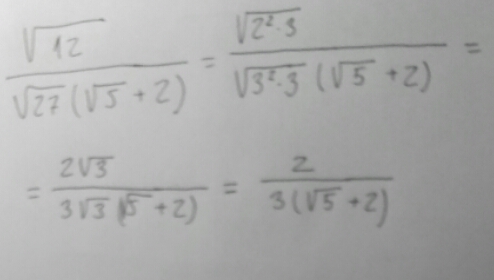 √12 / √27(√5+2) = √2²·3 / √3²·3 (√5+2) =
= 2√3 / 3√3(√5+2) = 2 / 3(√5+2)